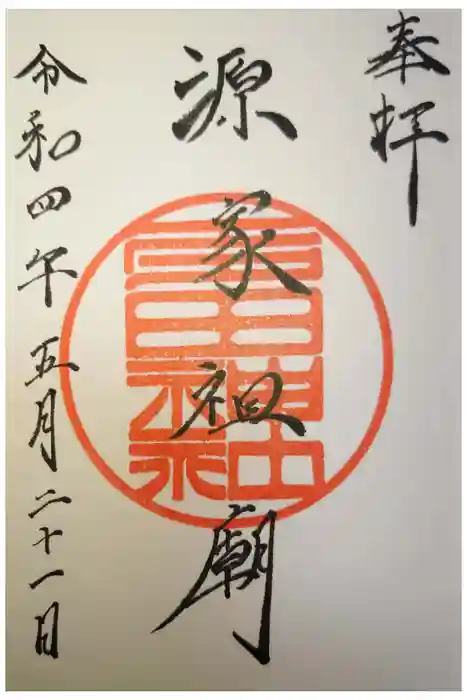 奉拝
源家祖廟
令和四年五月二十一日